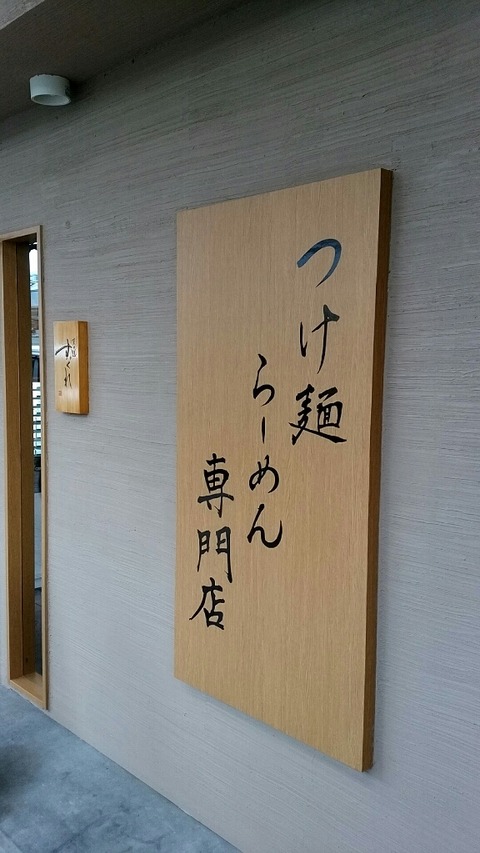 つけ麺
らーめん
専門店